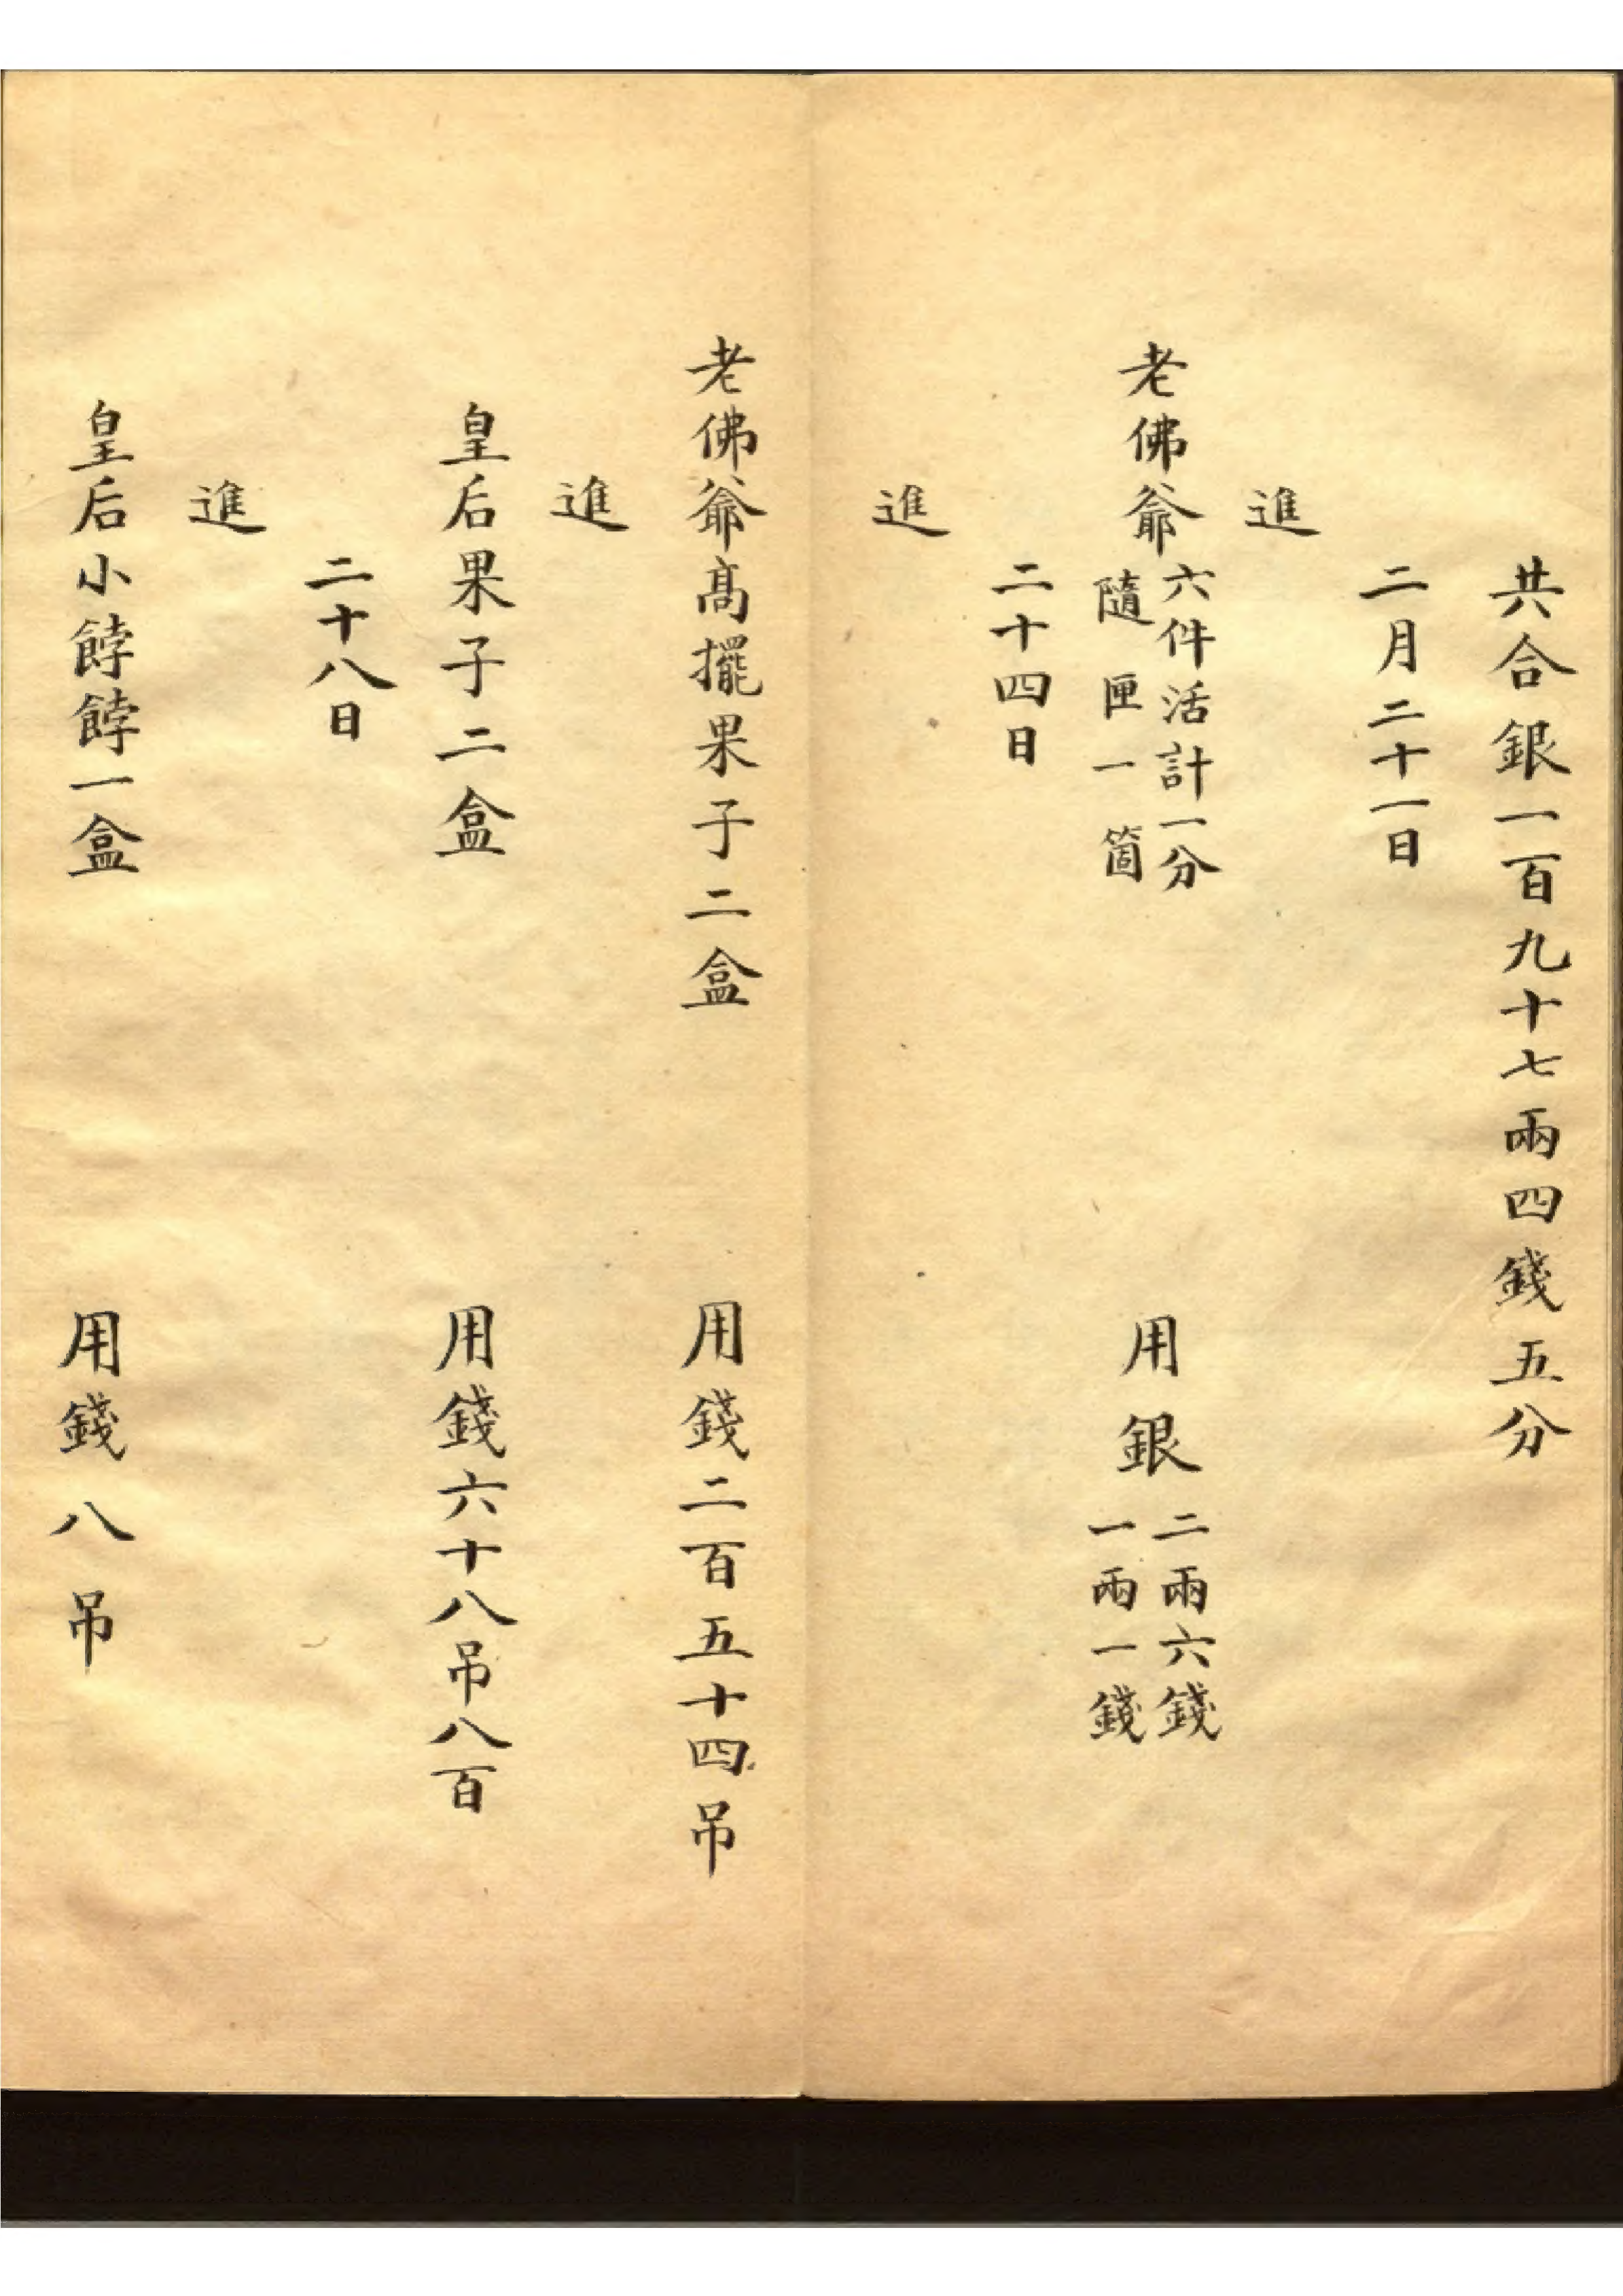 共合銀一百九十七兩四錢五分
二月二十一日
進
老佛爺六件活計一分
隨匣一箇
用銀二兩六錢
一兩一錢
二十四日
進
老佛爺高擺果子二盒
用錢二百五十四吊
進
皇后果子二盒
用錢六十八吊八百
二十八日
進
皇后小餑餑一盒
用錢八吊